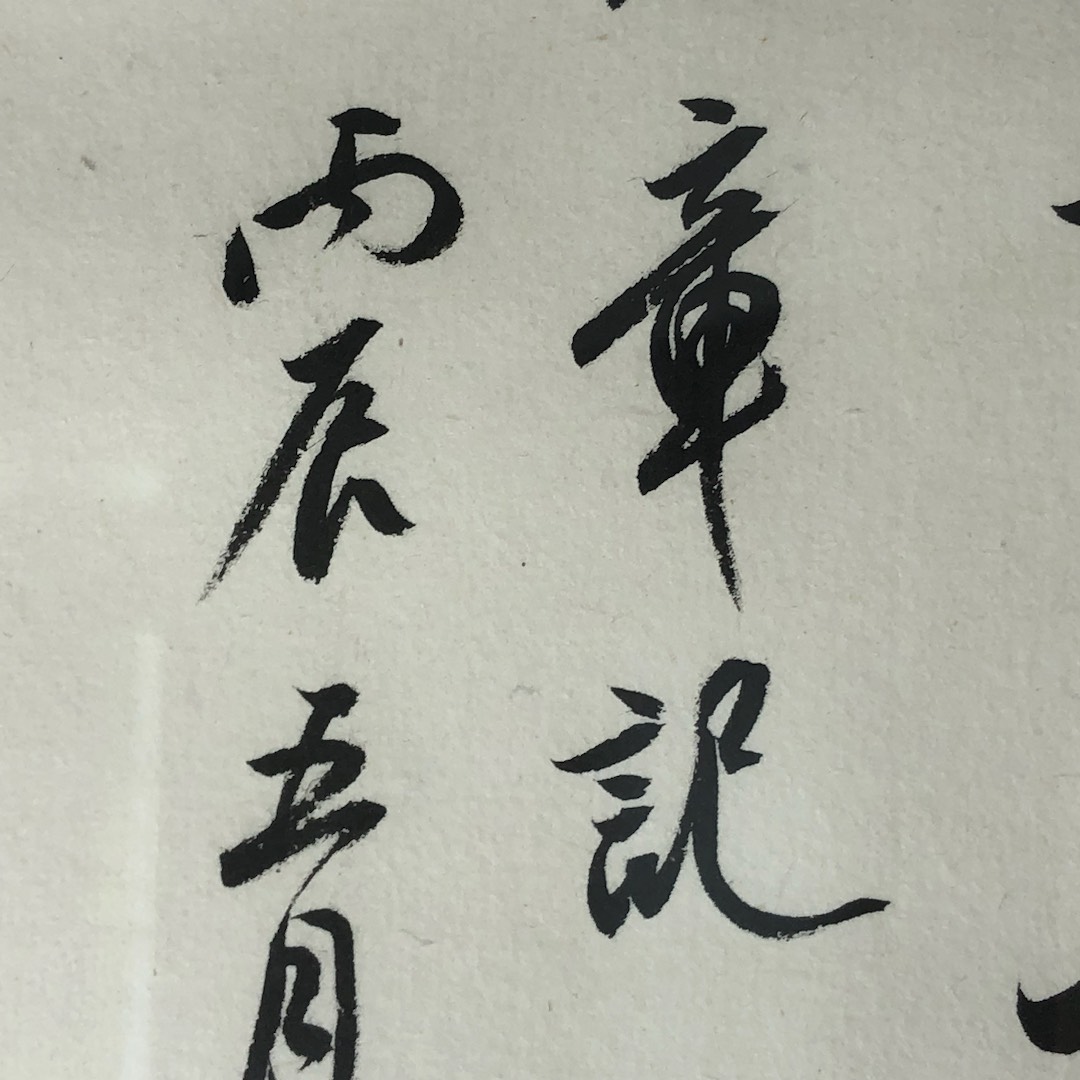 章記
丙辰五月